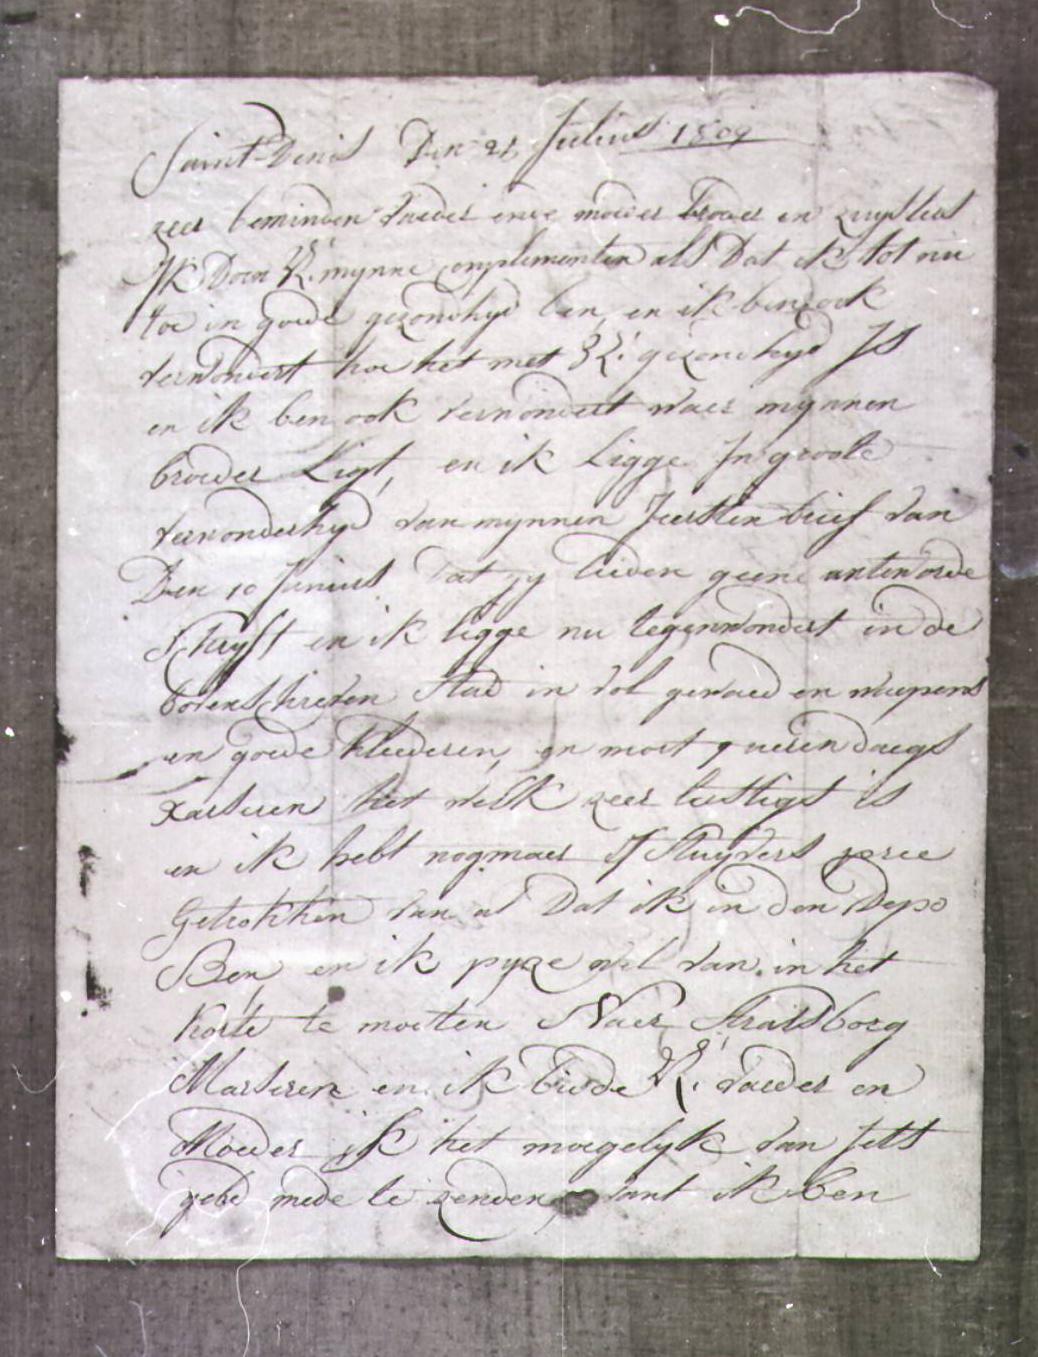 Saint Denis Den 21 Julius 1809
zeer beminden vaeder ende moeder broeder en zuysters
Ik Doen U: mynne complementen als Dat ik tot nu
toe in goede gezondhyd ben, en ik ben ook
verwondert hoe het met U: gezondhyd Is
en ik ben ook verwondert waer mynnen
broeder Ligt, en ik Ligge In groote
verwonderhyd van mynnen Jersten brief van
Den 10 Junius Dat gy lieden geene antworde
Schryft en ik ligge nu tegenwordert in de
bovenschreven stad in vol gewaed en waepens
en goede kleederen, en moet queren daegs
xarseren het welk zeer lustigt is
en ik hebt nogmaer stuyvers pree
Getrokken van al Dat ik in den Depo
Ben en ik pyze wel van in het
korte te moeten Naer Straisborg
Marseren en ik bidde U: vaeder en
Moeder is het moegelyk van Jets
geld mede te zenden, want ik ben